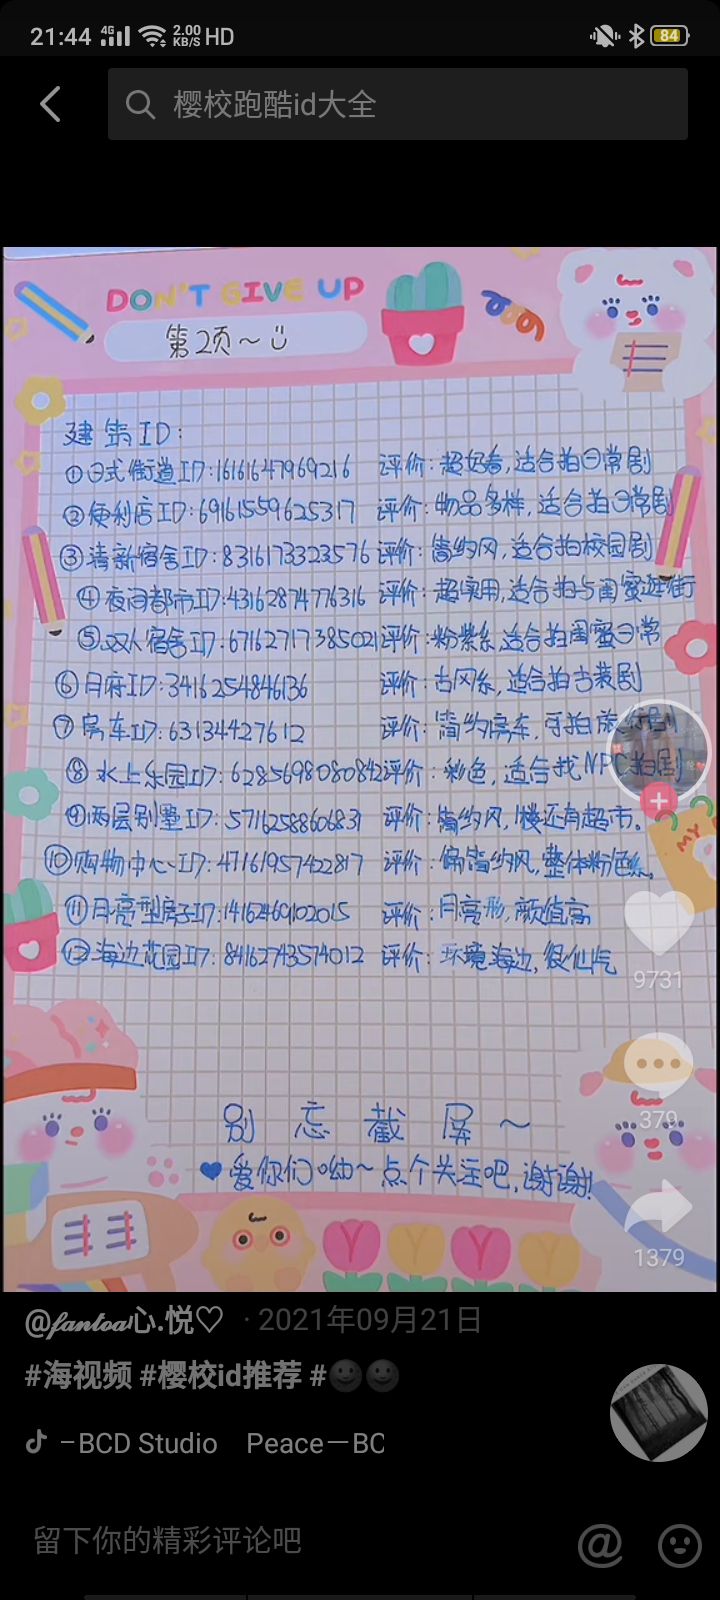 21:44 4G 2.00 KB/S HD 84
樱校跑酷id大全
DON'T GIVE UP
第2页~
建筑ID:
①日式街道ID:1616164796 9216 评价:超好看,适合拍日常剧
②便利店ID:69161559625317 评价:物品多样,适合拍日常剧
③清新宿舍ID:8316173323576 评价:简约风,适合拍校园剧
④夜间都市ID:4316287477 6316 评价:超实用,适合拍与闺蜜逛街
⑤双人宿舍ID:67162717385021 评价:粉紫系,适合拍闺蜜日常
⑥月府ID:3416254846136 评价:古风系,适合拍古装剧
⑦房车ID:63134427612 评价:简约房车,可拍旅行剧
⑧水上乐园ID:62856980808 42 评价:彩色,适合找NPC拍剧
⑨两层别墅ID:5716258860 6831 评价:简约风,1楼还有超市。
⑩购物中心ID:47161957422817 评价:偏简约风,整体粉色系。
⑪月亮型房子ID:1416246910 2015 评价:月亮形,颜值高
⑫海边花园ID:84162743574012 评价:环境海边,很仙气
MY
9731
379
别忘截屏~
爱你们呦~点个关注吧,谢谢!
1379
@fantoa心.悦♡ · 2021年09月21日
#海视频 #樱校id推荐 #
-BCD Studio Peace一BC
留下你的精彩评论吧